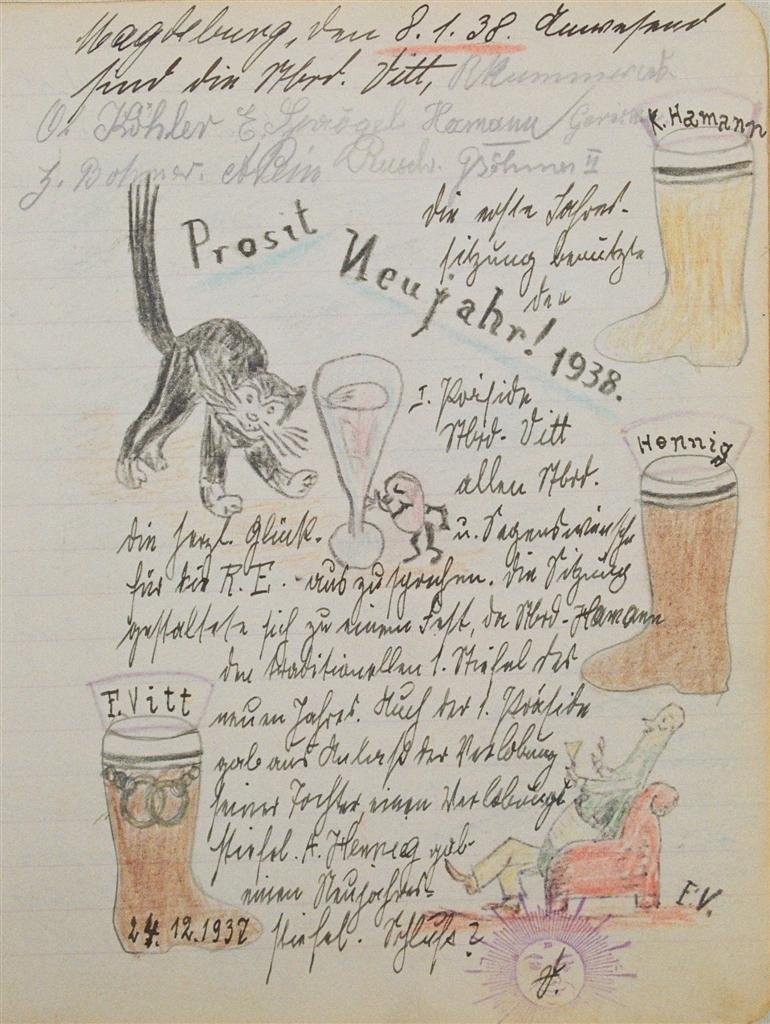 Magdeburg, den 8.1.38. Anwesend
sind die Mbrd. Vitt,
O. Köhler E. Hamann
Z. Bohmer. Böhmer II
K. Hamann
Prosit Neujahr! 1938.
die erste Jahres-
sitzung benützte
der
I. Präside
Mbrd. Vitt
allen Mbrd.
Hennig
die herzl. Glück-
u. Segenswünsche
für die R.E. auszusprechen. Die Sitzung
gestaltete sich zu einem Fest, da Mbrd. Hamann
den traditionellen 1. Stiefel des
neuen Jahres. Auch der 1. Präside
gab aus Anlaß der Verlobung
seiner Tochter, einen Verlobungs
stiefel. A. Hennig gab
einen Neujahrs-
stiefel. Schluß ?
F. Vitt
24.12.1937
F.V.